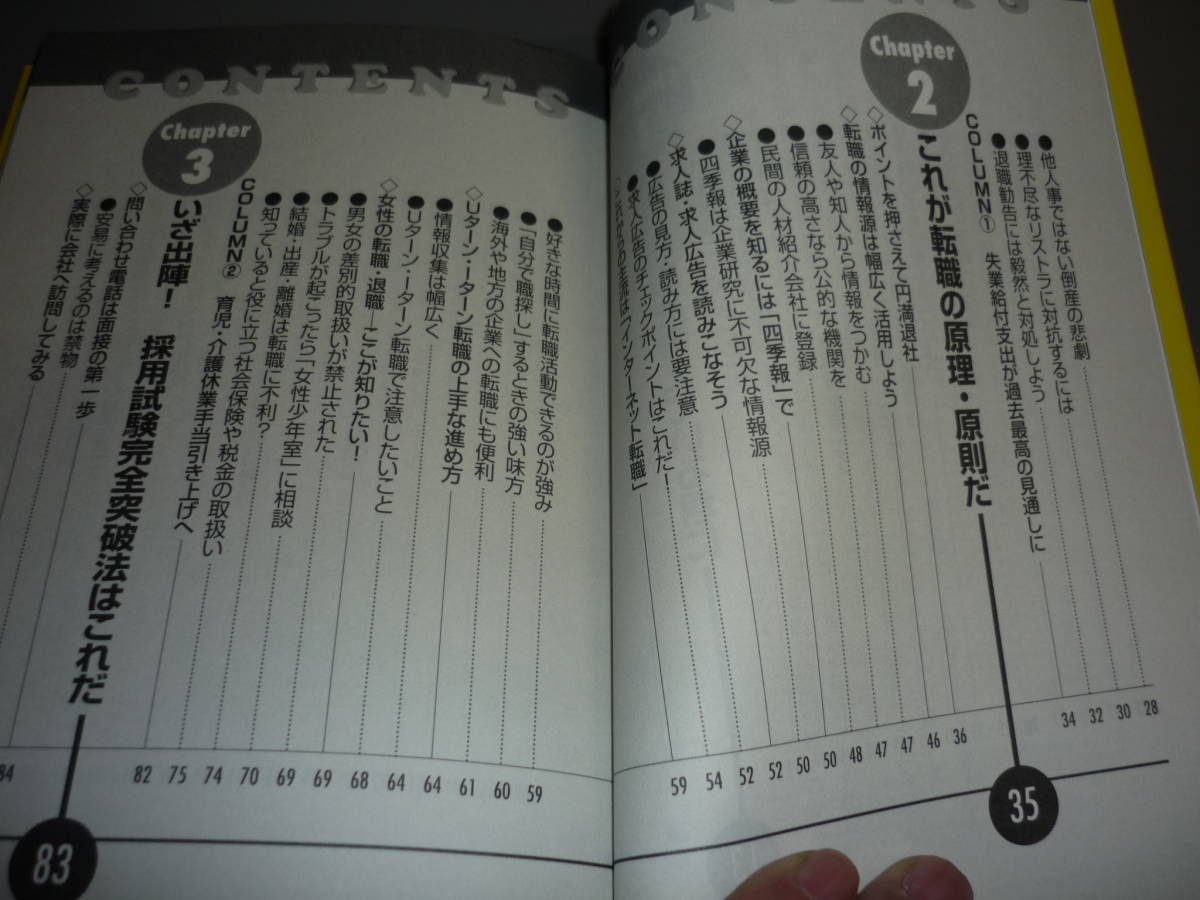 CONTENTS
●他人事ではない倒産の悲劇 28
●理不尽なリストラに対抗するには 30
●退職勧告には毅然と対処しよう 32
COLUMN① 失業給付支出が過去最高の見通しに 34
Chapter 2 これが転職の原理・原則だ 35
◇ポイントを押さえて円満退社 36
◇転職の情報源は幅広く活用しよう 46
●友人や知人から情報をつかむ 47
●信頼の高さなら公的な機関を 47
●民間の人材紹介会社に登録 48
◇企業の概要を知るには「四季報」で 50
●四季報は企業研究に不可欠な情報源 50
◇求人誌・求人広告を読みこなそう 52
●広告の見方・読み方には要注意 52
●求人広告のチェックポイントはこれだ！ 54
◇これからの主流は「インターネット転職」 59
CONTENTS
●好きな時間に転職活動できるのが強み 59
●「自分で職探し」するときの強い味方 60
●海外や地方の企業への転職にも便利 61
◇Uターン・Iターン転職の上手な進め方 64
●情報収集は幅広く 64
●Uターン・Iターン転職で注意したいこと 68
◇女性の転職・退職―ここが知りたい！ 69
●男女の差別的取扱いが禁止された 69
●トラブルが起こったら「女性少年室」に相談 70
●結婚・出産・離婚は転職に不利？ 74
●知っていると役に立つ社会保険や税金の取扱い 75
COLUMN② 育児・介護休業手当引き上げへ 82
Chapter 3 いざ出陣！ 採用試験完全突破法はこれだ 83
◇問い合わせ電話は面接の第一歩 84
●安易に考えるのは禁物
◇実際に会社へ訪問してみる